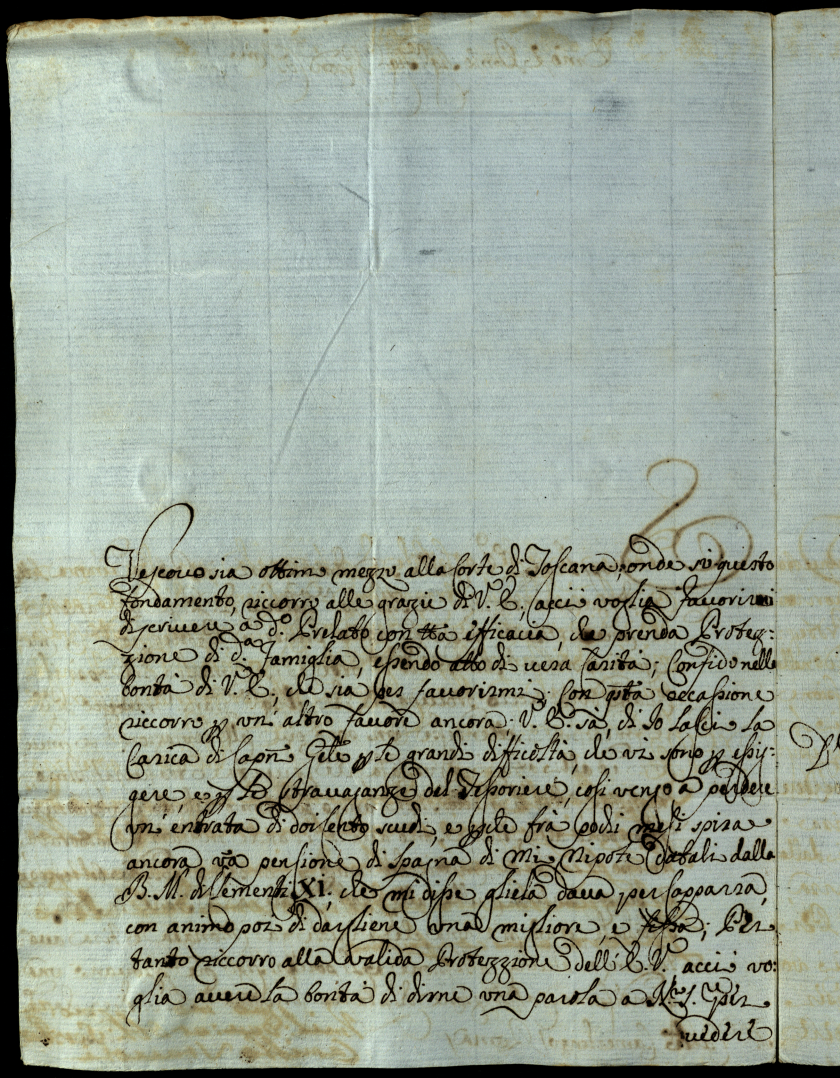 Vescovo sia ottimo mezzo alla Corte di Toscana, onde sù questo
fondamento, riccorro alle grazie di V. E. acciò voglia favorirmi
di scrivere a d.o Prelato con tta efficacia, che prenda Proteg-
zione di d.a Famiglia, essendo atto di vera Carità; Confido nella
bontà di V. E., che sia per favorirmi; Con qsta occassione
riccorro p un' altro favore ancora. V. E. sà, di Io lascio la
Carica di Capn Gnle p le grandi difficoltà, che vi sono p essi-
gere, e p le stravaganze del Tesoriere, così vengo a perdere
un' entrata di doicento scudi, e pche frà pochi mesi spira
ancora una pensione di Spagna di Mio Nipote datali dalla
B. M. di Clemente XI, che mi disse gliela dava per Capparra,
con animo poi di dargliene una migliore, e fissa; Per
tanto riccorro alla valida Protezzione dell' E. V. acciò vo-
glia avere la bontà di dirne una parola a N.ro S. p
vedere